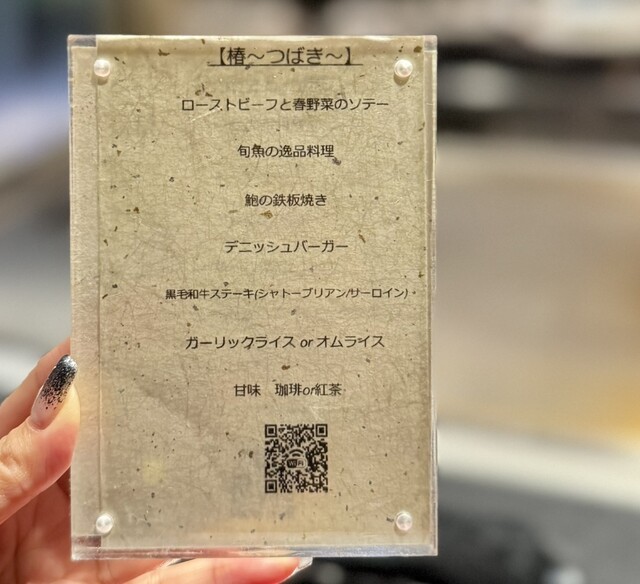 【椿～つばき～】
ローストビーフと春野菜のソテー
旬魚の逸品料理
鮑の鉄板焼き
デニッシュバーガー
黒毛和牛ステーキ(シャトーブリアン/サーロイン)
ガーリックライス or オムライス
甘味　珈琲or紅茶
WiFi